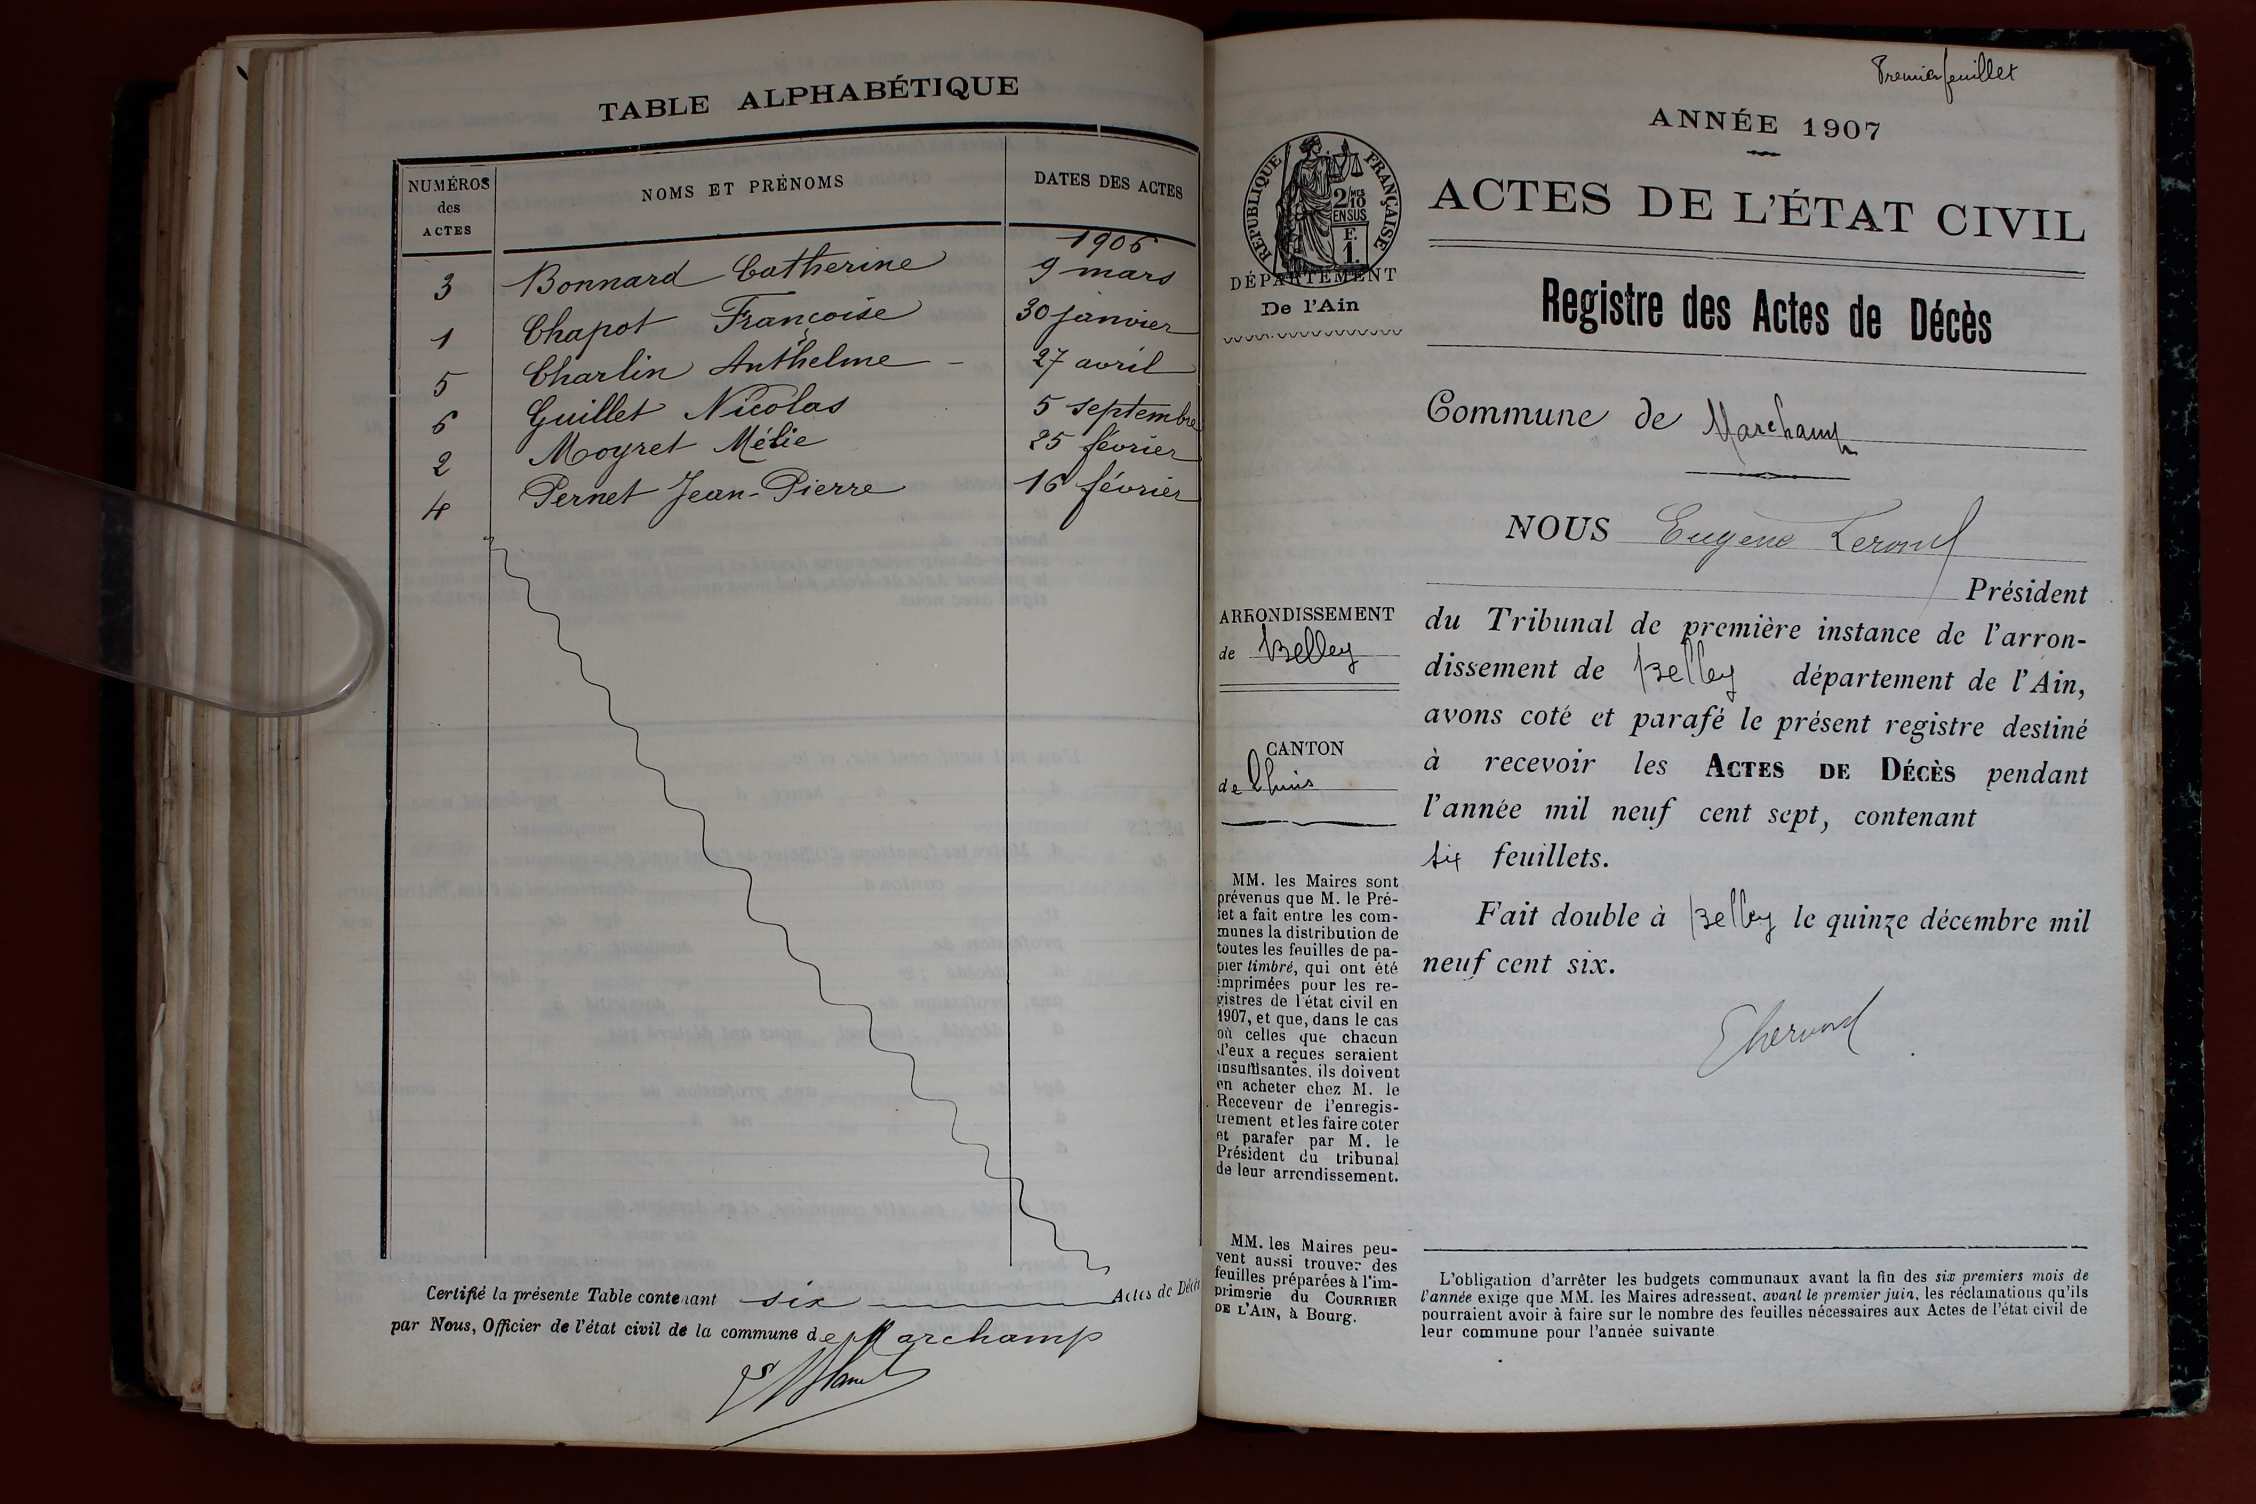 TABLE ALPHABÉTIQUE
NUMÉROS des ACTES
NOMS ET PRÉNOMS
DATES DES ACTES
1906
3 Bonnard Catherine 9 mars
1 Chapot Françoise 30 janvier
5 Charlin Anthelme - 27 avril
6 Guillet Nicolas 5 septembre
2 Moyret Mélie 25 février
4 Pernet Jean-Pierre 16 février
Certifié la présente Table contenant six Actes de Décès
par Nous, Officier de l'état civil de la commune de Marchamp
Premier feuillet
ANNÉE 1907
RÉPUBLIQUE FRANÇAISE
2/10 MES
EN SUS
F.
1.
DÉPARTEMENT
De l'Ain
ACTES DE L'ÉTAT CIVIL
Registre des Actes de Décès
Commune de Marchamp
NOUS Eugène
Président
ARRONDISSEMENT
de Belley
CANTON
de Lhuis
du Tribunal de première instance de l'arron-
dissement de Belley département de l'Ain,
avons coté et parafé le présent registre destiné
à recevoir les ACTES DE DÉCÈS pendant
l'année mil neuf cent sept, contenant
six feuillets.
Fait double à Belley le quinze décembre mil
neuf cent six.
MM. les Maires sont
prévenus que M. le Pré-
fet a fait entre les com-
munes la distribution de
toutes les feuilles de pa-
pier timbré, qui ont été
imprimées pour les re-
gistres de l'état civil en
1907, et que, dans le cas
où celles que chacun
d'eux a reçues seraient
insuffisantes, ils doivent
en acheter chez M. le
Receveur de l'enregis-
trement et les faire coter
et parafer par M. le
Président du tribunal
de leur arrondissement.
MM. les Maires peu-
vent aussi trouver des
feuilles préparées à l'im-
primerie du COURRIER
DE L'AIN, à Bourg.
L'obligation d'arrêter les budgets communaux avant la fin des six premiers mois de
l'année exige que MM. les Maires adressent, avant le premier juin, les réclamations qu'ils
pourraient avoir à faire sur le nombre des feuilles nécessaires aux Actes de l'état civil de
leur commune pour l'année suivante